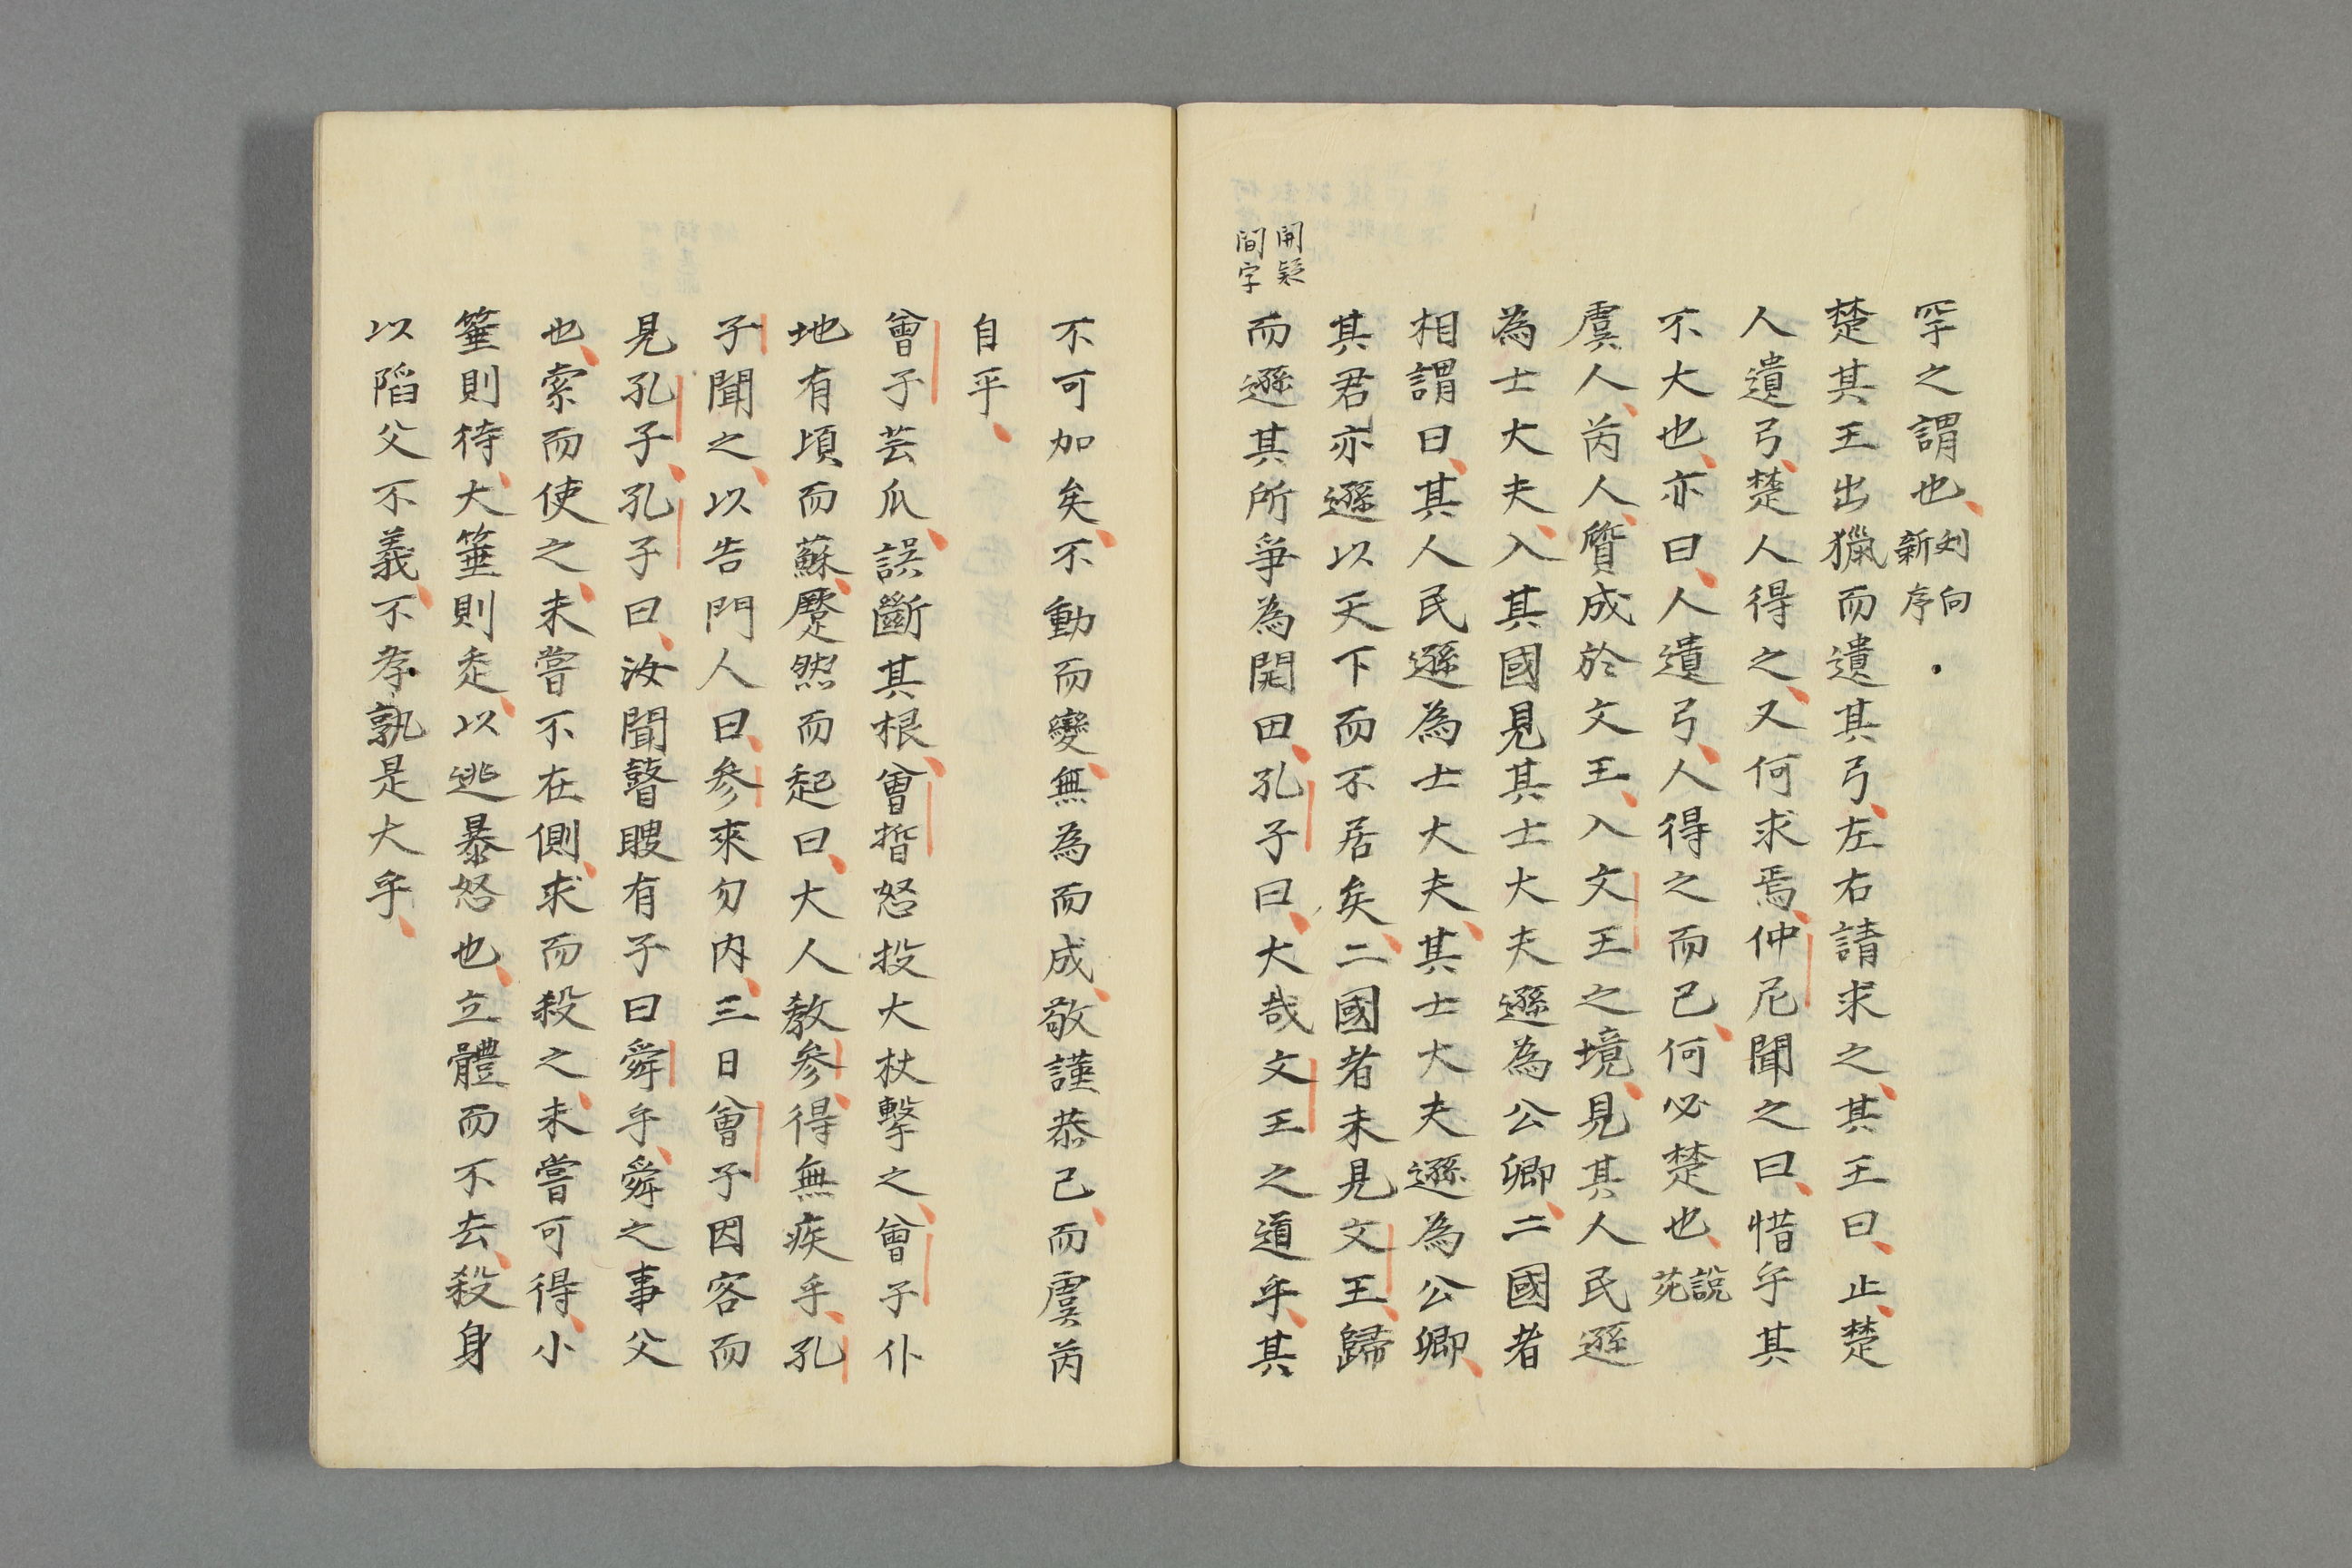 罕之謂也、刘向新序
楚其王出獵而遺其弓、左右請求之、其王曰、止、楚
人遺弓、楚人得之、又何求焉、仲尼聞之曰、惜乎其
不大也、亦曰、人遺弓、人得之而已、何必楚也、說苑
虞人、芮人、質成於文王、入文王之境、見其人民遜
為士大夫、入其國見其士大夫遜為公卿、二國者
相謂曰、其人民遜為士大夫、其士大夫遜為公卿、
其君亦遜以天下而不居矣、二國者未見文王、歸
開疑間字
而遜其所爭為開田、孔子曰、大哉文王之道乎、其
不可加矣、不動而變、無為而成、敬謹恭己、而虞芮
自平、
曾子芸瓜、誤斷其根、曾晳怒投大杖擊之、曾子仆
地有頃而蘇、蹷然而起曰、大人教参、得無疾乎、孔
子聞之、以告門人曰、参來勿內、三日曾子因客而
見孔子、孔子曰、汝聞瞽瞍有子曰舜乎、舜之事父
也、索而使之、未嘗不在側、求而殺之、未嘗可得、小
箠則待、大箠則走、以逃暴怒也、立體而不去、殺身
以陷父不義、不孝孰是大乎、